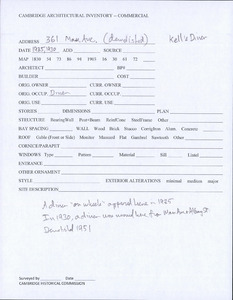 CAMBRIDGE ARCHITECTURAL INVENTORY -- COMMERCIAL
ADDRESS 361 Mass Ave. (demolished) Kell's Diner
DATE 1925, 1930 ADD SOURCE
MAP 1830 54 73 86 94 1903 16 30 61 72
ARCHITECT BPI
BUILDER COST
ORIG. OCCUP. Diner CURR. OCCUP.
ORIG. USE CURR. USE
STORIES DIMENSIONS PLAN
STRUCTURE BearingWall Post+Beam ReinfConc SteelFrame Other
BAY SPACING WALL Wood Brick Stucco Corrugiron Alum. Concrete
ROOF Gable (Front or Side) Monitor Mansard Flat Gambrel Sawtooth Other
CORNICE/PARAPET
WINDOWS Type Pattern Material Sill Lintel
ENTRANCE
OTHER
STYLE EXTERIOR ALTERATIONS minimal medium major
SITE DESCRIPTION
A diner "on wheels" appeared here in 1925
In 1930, a diner was moved here from Main and Albany St
Demolished 1951
Surveyed by Date
CAMBRIDGE HISTORICAL COMMISSION